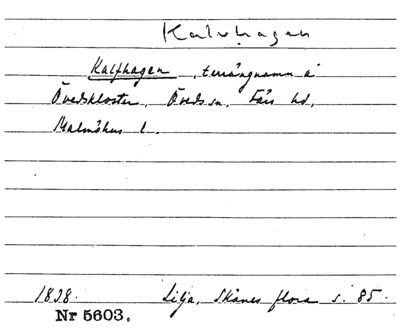 Kalvhagen
Kalfhagen, terrängnamn å
Övedskloster, Öveds sn, Färs hd,
Malmöhus l.
1838. Lilja, Skånes flora s. 85.
Nr 5603.